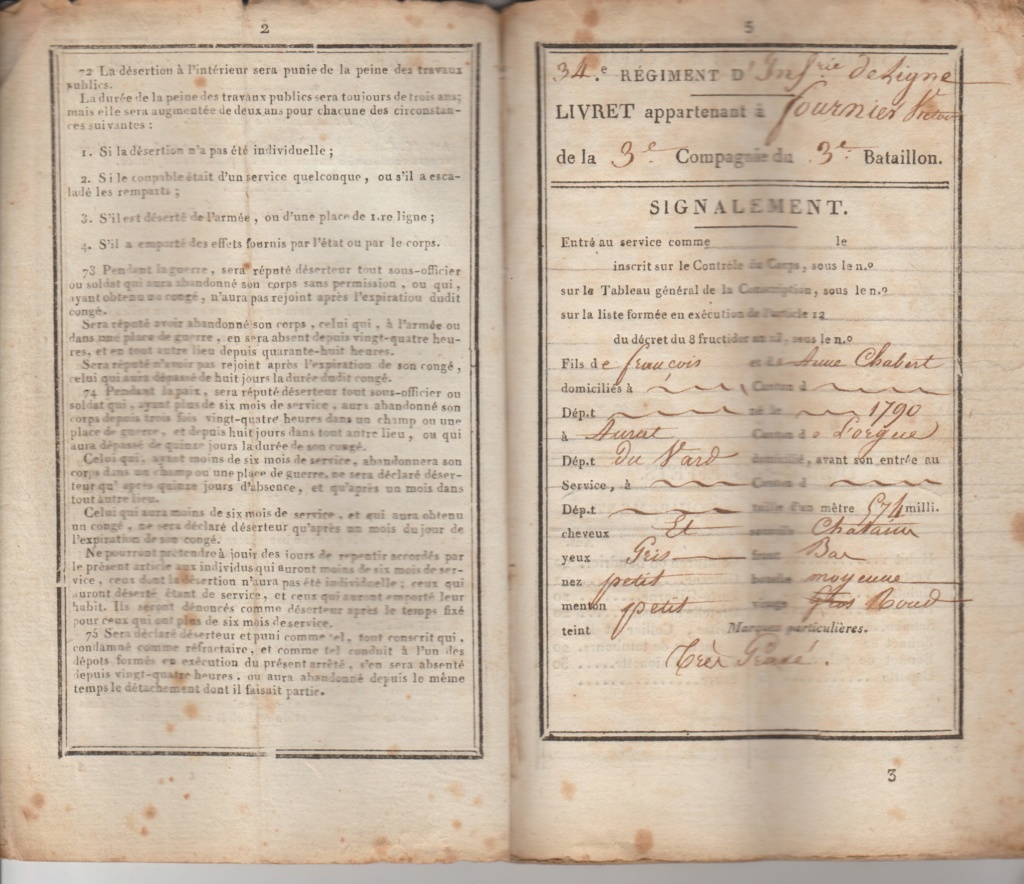 2
72 La désertion à l'intérieur sera punie de la peine des travaux
publics.
La durée de la peine des travaux publics sera toujours de trois ans;
mais elle sera augmentée de deux ans pour chacune des circonstan-
ces suivantes :
1. Si la désertion n'a pas été individuelle ;
2. Si le coupable était d'un service quelconque, ou s'il a esca-
ladé les remparts ;
3. S'il est déserté de l'armée, ou d'une place de 1.re ligne ;
4. S'il a emporté des effets fournis par l'état ou par le corps.
73 Pendant la guerre, sera réputé déserteur tout sous-officier
ou soldat qui aura abandonné son corps sans permission, ou qui,
ayant obtenu un congé, n'aura pas rejoint après l'expiration dudit
congé.
Sera réputé avoir abandonné son corps, celui qui, à l'armée ou
dans une place de guerre, en sera absent depuis vingt-quatre heu-
res, et en tout autre lieu depuis quarante-huit heures.
Sera réputé n'avoir pas rejoint après l'expiration de son congé,
celui qui aura dépassé de huit jours la durée dudit congé.
74 Pendant la paix, sera réputé déserteur tout sous-officier ou
soldat qui, ayant plus de six mois de service, aura abandonné son
corps depuis trois fois vingt-quatre heures dans un champ ou une
place de guerre, et depuis huit jours dans tout autre lieu, ou qui
aura dépassé de quinze jours la durée de son congé.
Celui qui, ayant moins de six mois de service, abandonnera son
corps dans un champ ou une place de guerre, ne sera déclaré déser-
teur qu'après quinze jours d'absence, et qu'après un mois dans
tout autre lieu.
Celui qui aura moins de six mois de service, et qui aura obtenu
un congé, ne sera déclaré déserteur qu'après un mois du jour de
l'expiration de son congé.
Ne pourront prétendre à jouir des jours de repentir accordés par
le présent article aux individus qui auront moins de six mois de ser-
vice, ceux dont la désertion n'aura pas été individuelle ; ceux qui
auront déserté étant de service, et ceux qui auront emporté leur
habit. Ils seront dénoncés comme déserteur après le temps fixé
pour ceux qui ont plus de six mois de service.
75 Sera déclaré déserteur et puni comme tel, tout conscrit qui,
condamné comme réfractaire, et comme tel conduit à l'un des
dépots formés en exécution du présent arrêté, s'en sera absenté
depuis vingt-quatre heures, ou aura abandonné depuis le même
temps le détachement dont il faisait partie.
34.e RÉGIMENT D'Inf.rie de Ligne
LIVRET appartenant à fournier
de la 3e Compagnie du 3e. Bataillon.
SIGNALEMENT.
Entré au service comme le
inscrit sur le Contrôle du Corps, sous le n.o
sur le Tableau général de la Conscription, sous le n.o
sur la liste formée en exécution de l'article 12
du décret du 8 fructidor an 13, sous le n.o
Fils de françois et de Anne Chabert
domiciliés à Canton d
Dép.t né le 1790
à Canton de Lorgue
Dép.t Du Vard domicilié, avant son entrée au
Service, à Canton d
Dép.t taille d'un mètre 574 milli.
cheveux Et sourcils Chatain
yeux Gris front Bas
nez petit bouche moyenne
menton petit visage Rond
teint Marques particulières.
3